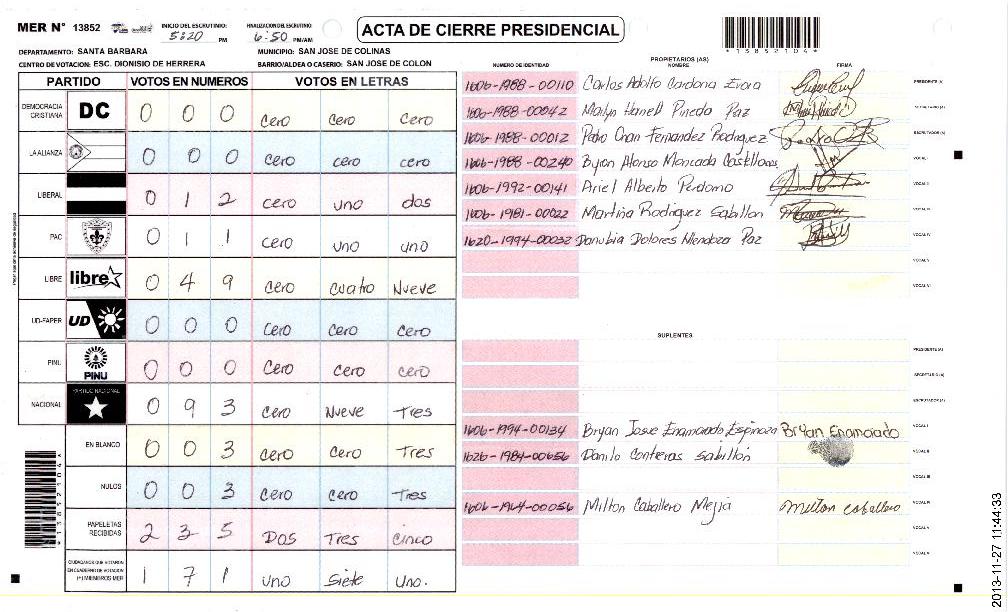 MER N° 13852
INICIO DEL ESCRUTINIO: 5:20 PM
FINALIZACION DEL ESCRUTINIO: 6:50 PM/AM
ACTA DE CIERRE PRESIDENCIAL
*13852104*
DEPARTAMENTO: SANTA BARBARA
MUNICIPIO: SAN JOSE DE COLINAS
CENTRO DE VOTACION: ESC. DIONISIO DE HERRERA
BARRIO/ALDEA O CASERIO: SAN JOSE DE COLON
PARTIDO VOTOS EN NUMEROS VOTOS EN LETRAS
DEMOCRACIA CRISTIANA DC 0 0 0 cero cero cero
LA ALIANZA 0 0 0 cero cero cero
LIBERAL 0 1 2 cero uno dos
PAC 0 1 1 cero uno uno
LIBRE libre 0 4 9 cero cuatro Nueve
UD-FAPER UD 0 0 0 cero cero cero
PINU PINU 0 0 0 cero cero cero
NACIONAL PARTIDO NACIONAL 0 9 3 cero Nueve Tres
EN BLANCO 0 0 3 cero cero Tres
NULOS 0 0 3 cero cero Tres
PAPELETAS RECIBIDAS 2 3 5 Dos Tres cinco
CIUDADANOS QUE VOTARON EN CUADERNO DE VOTACION (+) MIEMBROS MER 1 7 1 uno Siete Uno.
*13852104*
PROPIETARIOS (AS)
NUMERO DE IDENTIDAD NOMBRE FIRMA
1606-1988-00110 Carlos Adolfo Cardona Evora PRESIDENTE (A)
1606-1988-00042 Marlyn Hanell Pineda Paz SECRETARIO (A)
1606-1988-00012 Pedro Onan Fernandez Rodriguez ESCRUTADOR (A)
1606-1988-00240 Byron Alonso Moncada Castellanos VOCAL I
1606-1992-00141 Ariel Alberto Perdomo VOCAL II
1606-1981-00022 Martina Rodriguez Sabillon VOCAL III
1620-1994-00032 Danubia Dolores Mendoza Paz VOCAL IV
VOCAL V
VOCAL VI
SUPLENTES
PRESIDENTE (A)
SECRETARIO (A)
ESCRUTADOR (A)
1606-1994-00134 Bryan Josue Enamorado Espinoza Bryan Enamorado VOCAL I
1626-1984-00656 Danilo Contreras Sabillon VOCAL II
VOCAL III
1606-1964-00056 Milton Caballero Mejia milton caballero VOCAL IV
VOCAL V
VOCAL VI
2013-11-27 11:44:33